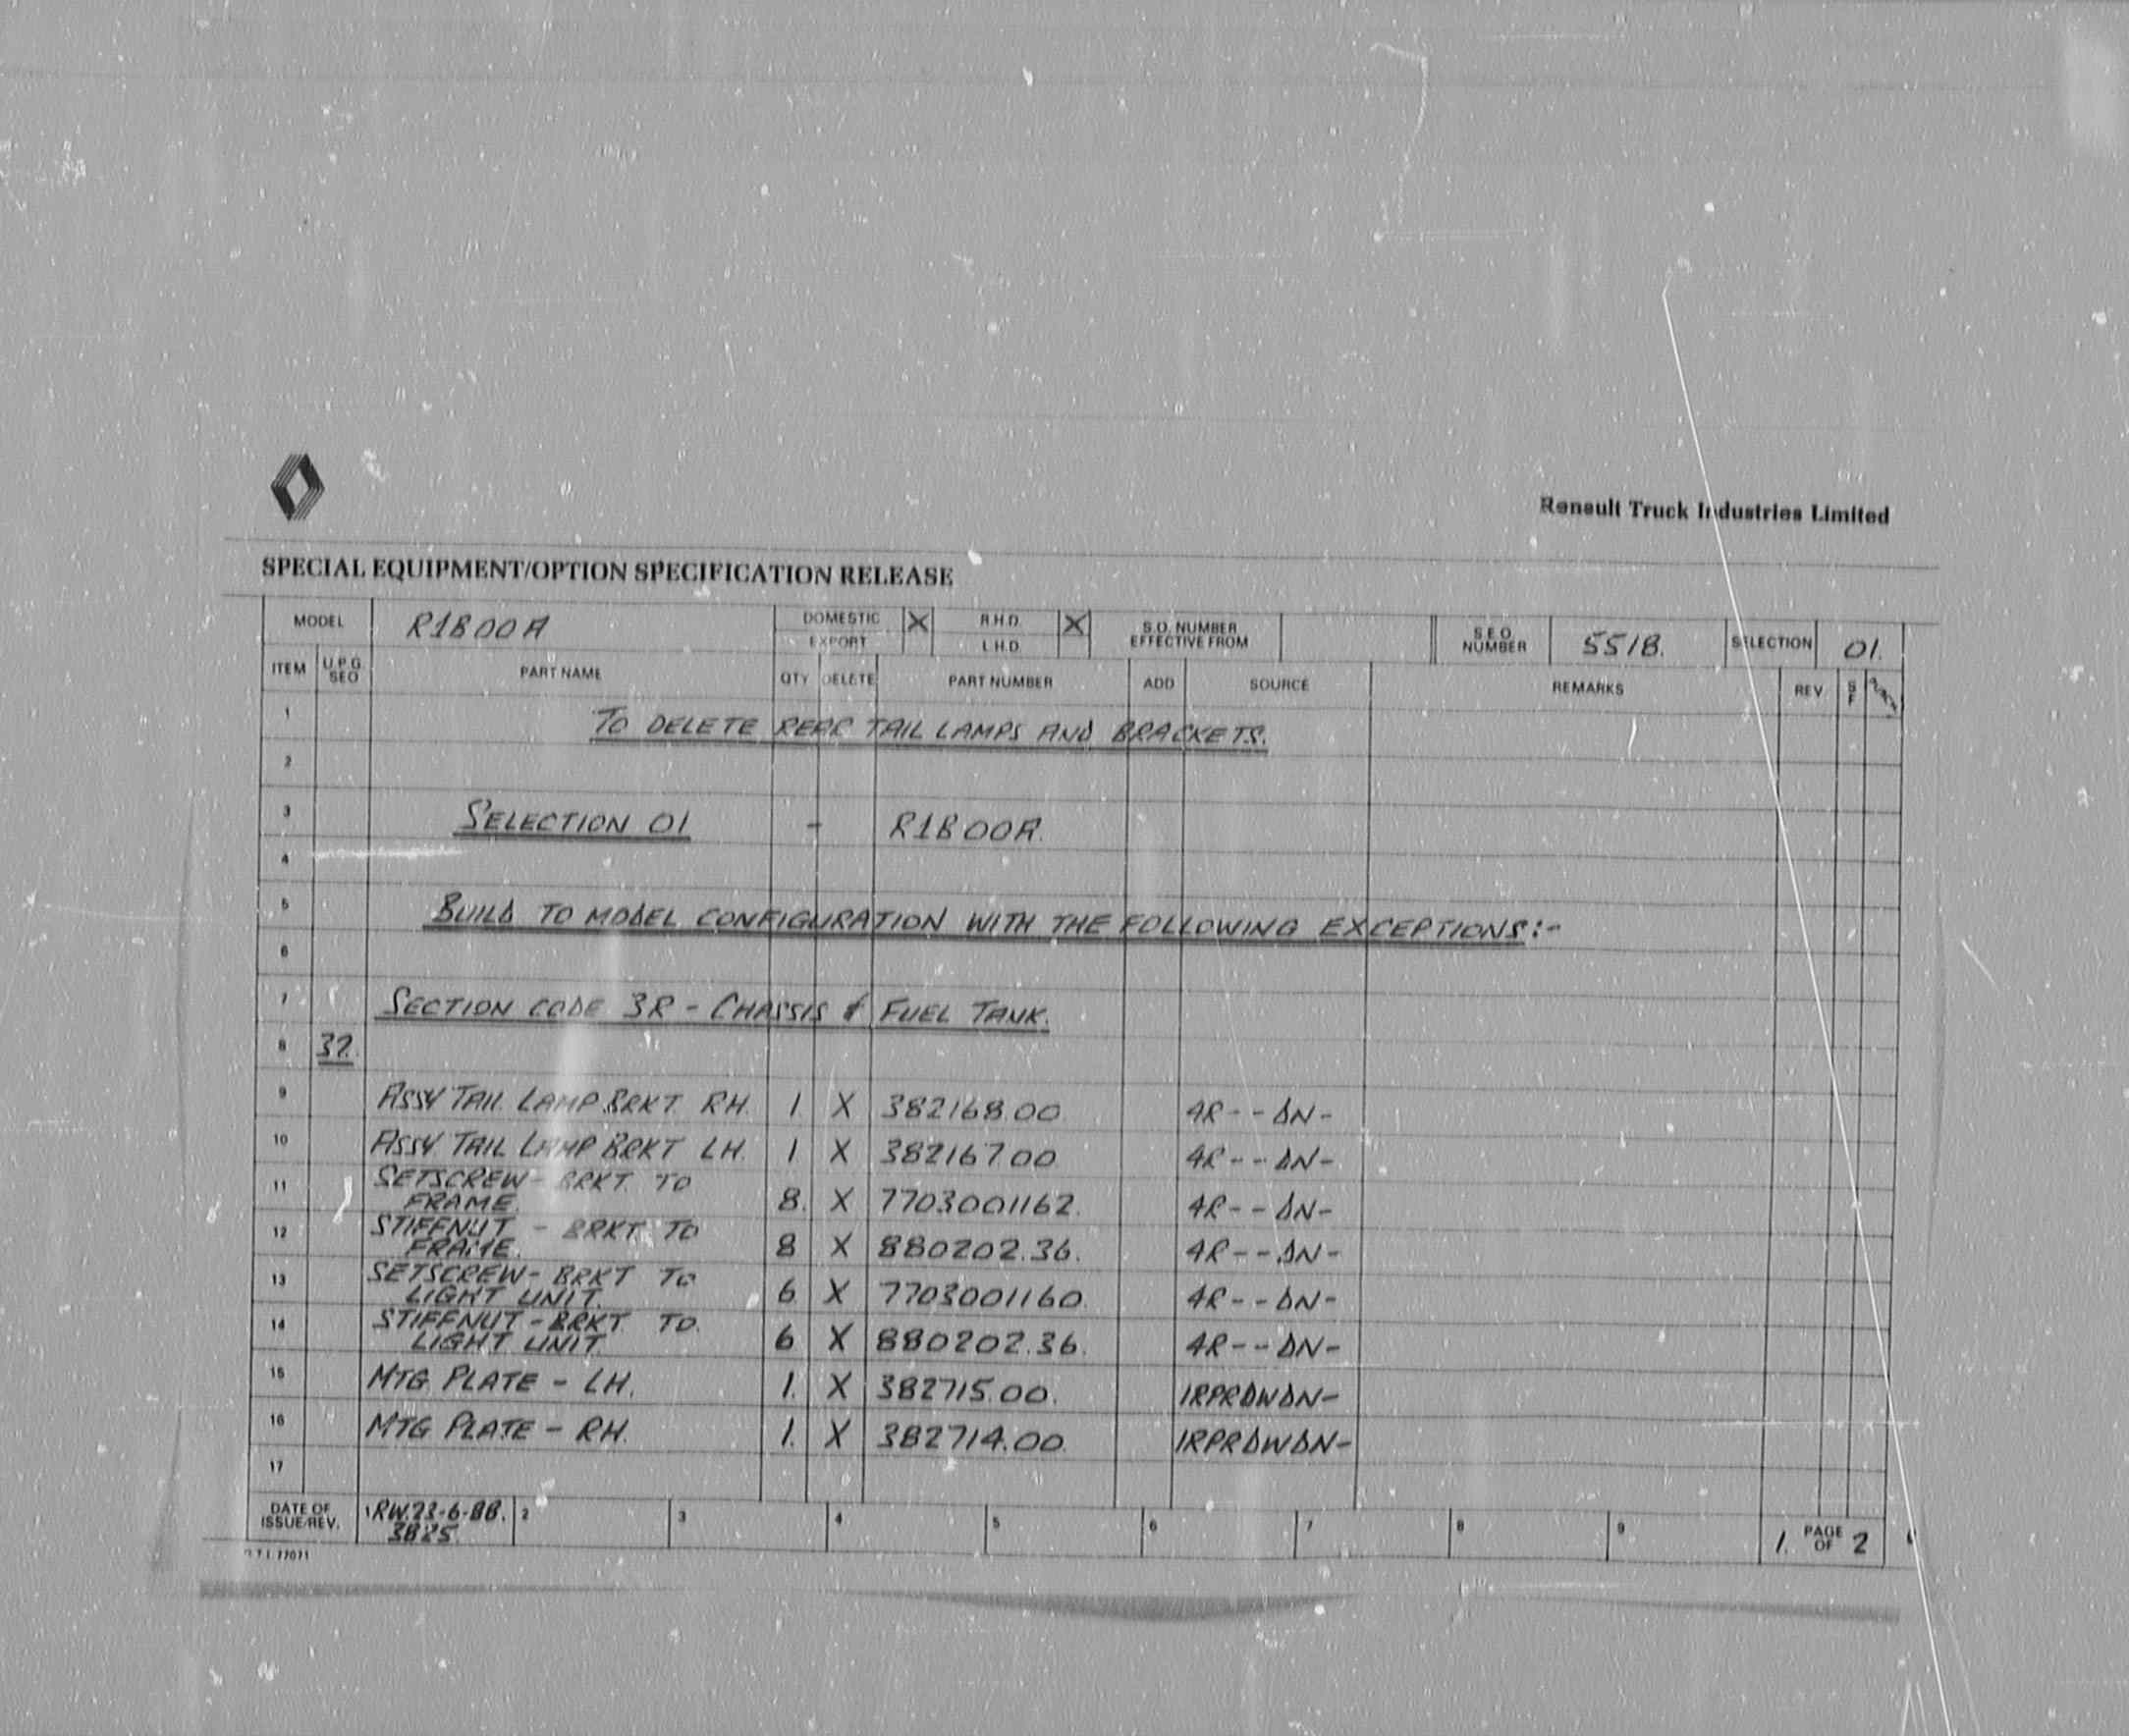 Renault Truck Industries Limited
SPECIAL EQUIPMENT/OPTION SPECIFICATION RELEASE
MODEL R1B00A DOMESTIC X R.H.D. X S.O. NUMBER S.E.O. NUMBER 551B. SELECTION 01.
EXPORT L.H.D. EFFECTIVE FROM
ITEM U.P.G. SEQ PART NAME QTY DELETE PART NUMBER ADD SOURCE REMARKS REV S F
1 TO DELETE REAR TAIL LAMPS AND BRACKETS.
2
3 SELECTION 01 - R1B00A.
4
5 BUILD TO MODEL CONFIGURATION WITH THE FOLLOWING EXCEPTIONS:-
6
7 SECTION CODE 3R - CHASSIS & FUEL TANK.
8 32.
9 ASSY TAIL LAMP BRKT RH. 1. X 382168.00 4R--DN-
10 ASSY TAIL LAMP BRKT LH. 1 X 382167.00 4R--DN-
11 SETSCREW - BRKT TO
FRAME. 8. X 7703001162. 4R--DN-
12 STIFFNUT - BRKT TO
FRAME. 8 X 880202.36. 4R--DN-
13 SETSCREW - BRKT TO
LIGHT UNIT. 6 X 7703001160 4R--DN-
14 STIFFNUT - BRKT TO.
LIGHT UNIT. 6 X 880202.36. 4R--DN-
15 MTG PLATE - LH. 1. X 382715.00. 1RPRDWDN-
16 MTG PLATE - RH. 1. X 382714.00. 1RPRDWDN-
17
DATE OF ISSUE/REV. 1 RW.23-6-88. 2 3 4 5 6 7 8 9 1. PAGE OF 2
3825.
R.T.I. 77071